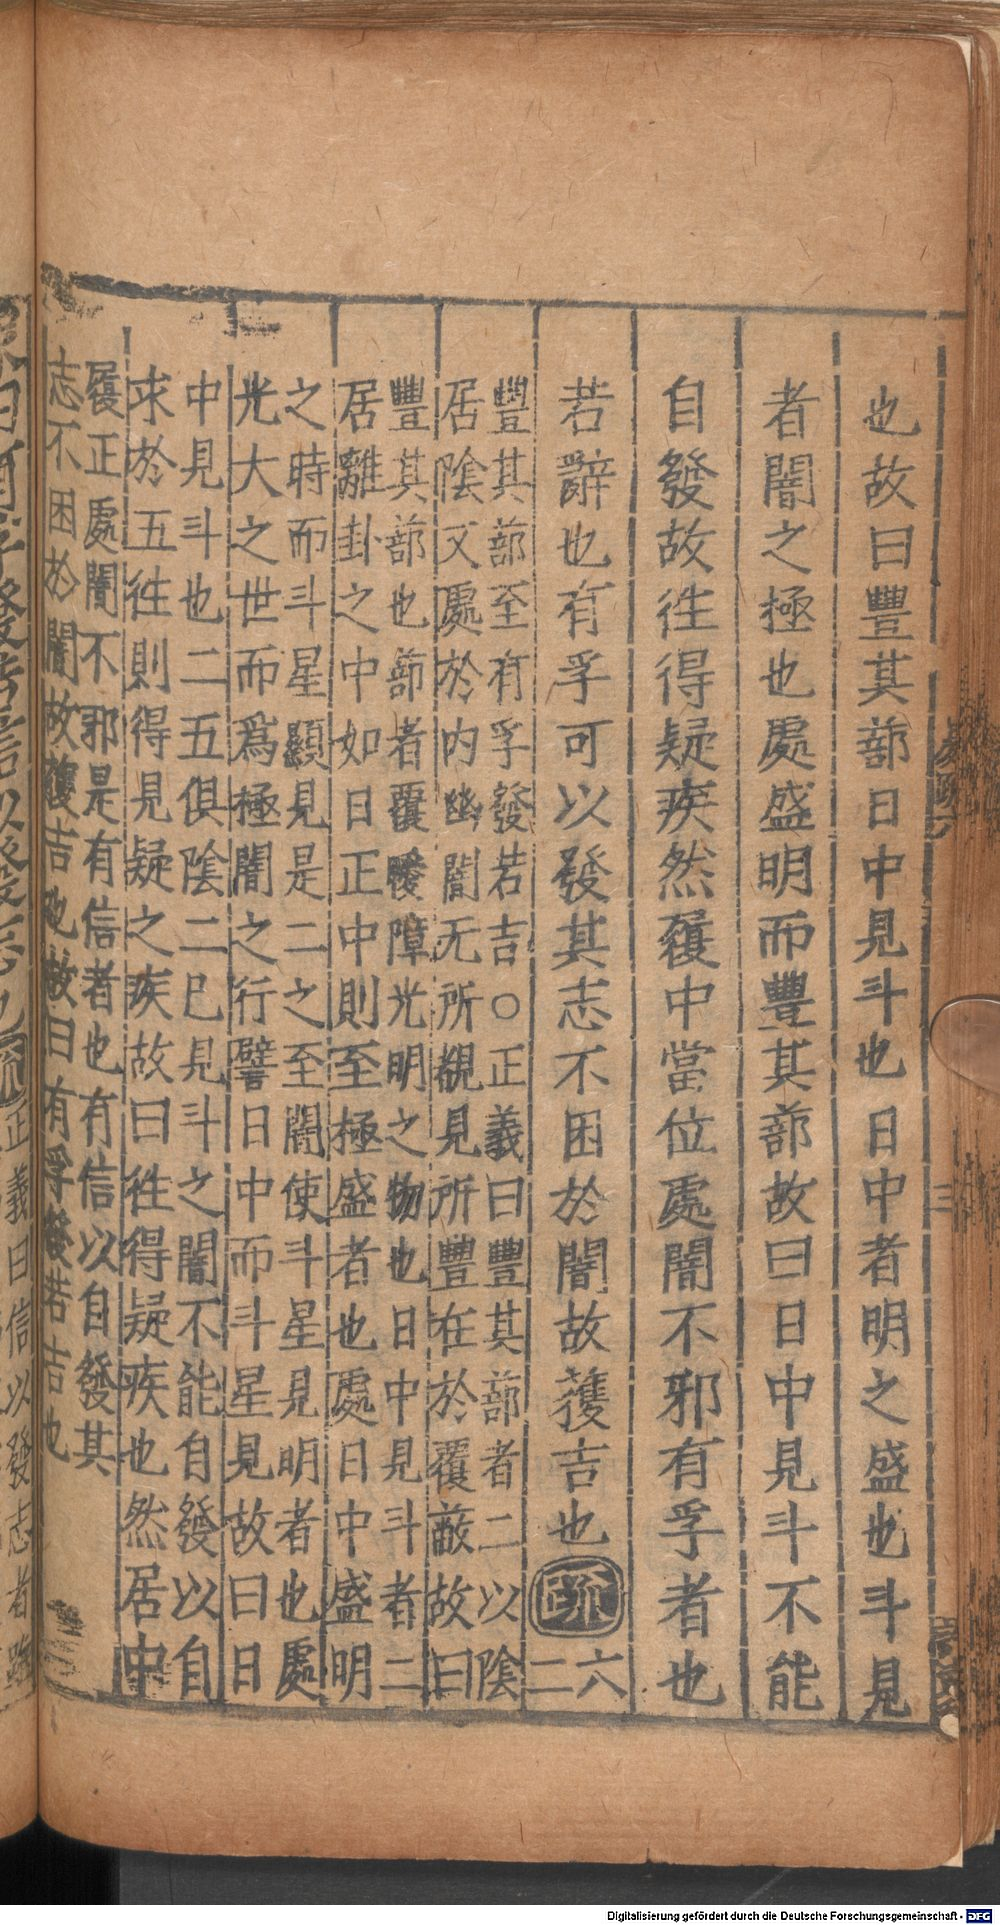 也故曰豐其蔀日中見斗也日中者明之盛也斗見
者闇之極也處盛明而豐其蔀故曰日中見斗不能
自發故往得疑疾然履中當位處闇不邪有孚者也
若辭也有孚可以發其志不困於闇故獲吉也疏六二
豐其蔀至有孚發若吉○正義曰豐其蔀者二以陰
居陰又處於內幽闇无所覩見所豐在於覆蔽故曰
豐其蔀也蔀者覆曖障光明之物也日中見斗者二
居離卦之中如日正中則至極盛者也處日中盛明
之時而斗星顯見是二之至闇使斗星見明者也處
光大之世而爲極闇之行譬日中而斗星見故曰日
中見斗也二五俱陰二已見斗之闇不能自發以自
求於五往則得見疑之疾故曰往得疑疾也然居中
履正處闇不邪是有信者也有信以自發其
志不困於闇故獲吉也故曰有孚發若吉也
正義曰信以發志者
Digitalisierung gefördert durch die Deutsche Forschungsgemeinschaft - DFG